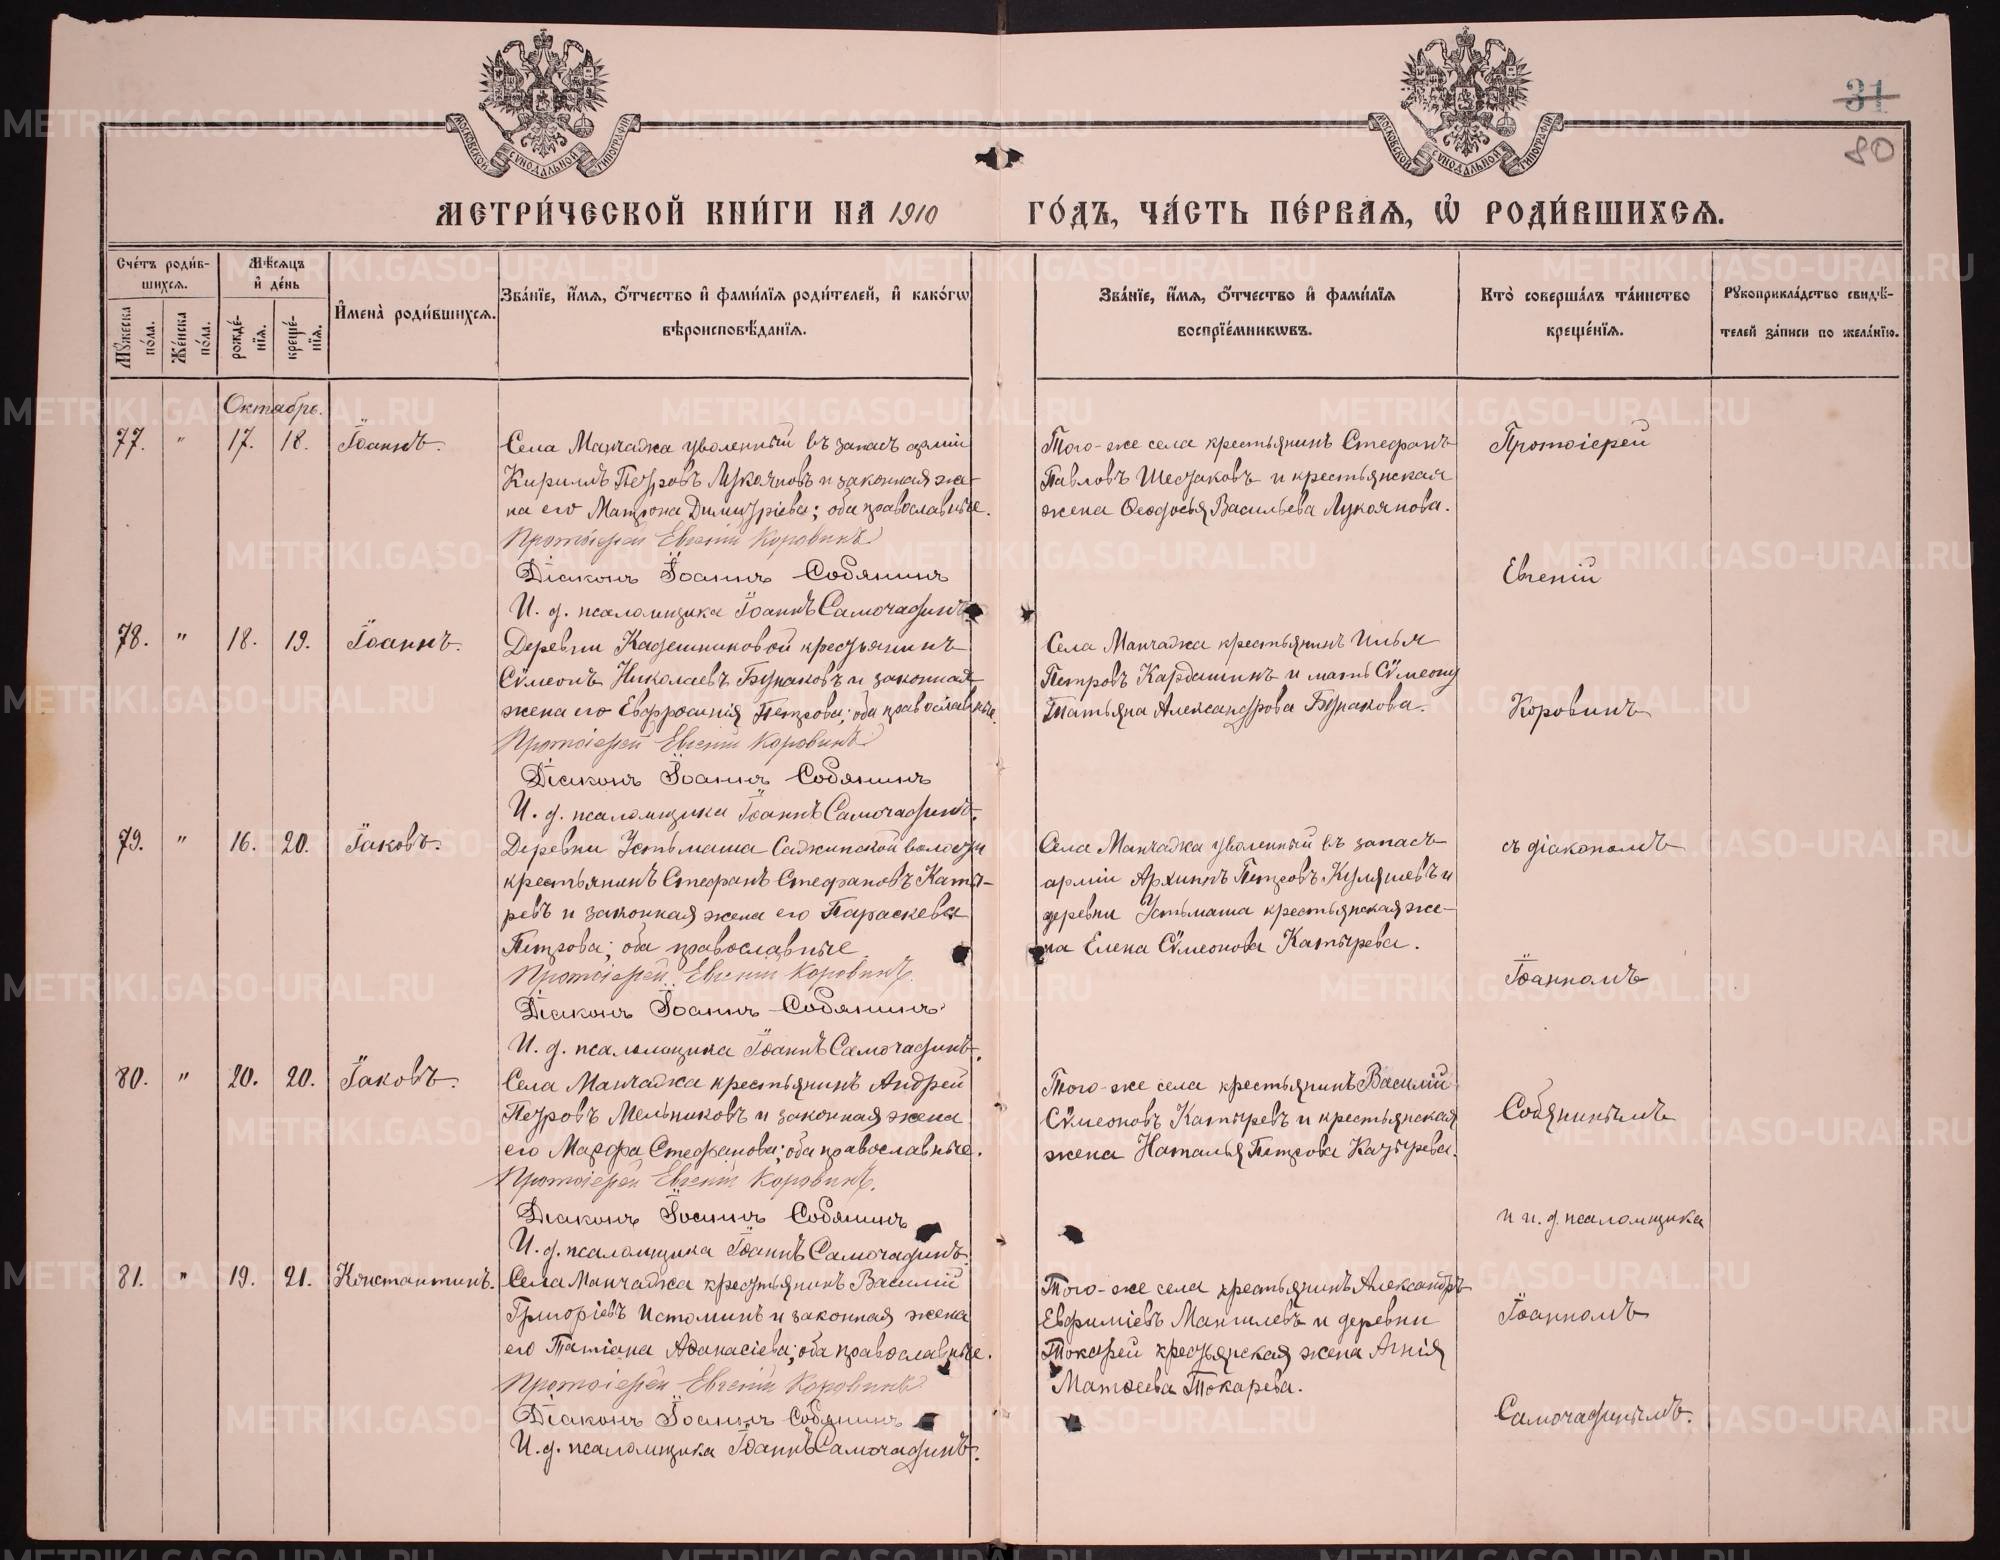 МОСКОВСКОЙ СУНОДАЛЬНОЙ ТИПОГРАФІИ
МОСКОВСКОЙ СУНОДАЛЬНОЙ ТИПОГРАФІИ
31
80
МЕТРИ́ЧЕСКОЙ КНИ́ГИ НА 1910 ГО́ДЪ, ЧА́СТЬ ПЕ́РВАЯ, Ѡ РОДИ́ВШИХСЯ.
Сче́тъ роди́в-
шихся.
Мѣсяцъ
и де́нь
Мꙋжеска
по́ла.
Же́нска
по́ла.
рожде́-
нїя.
креще́-
нїя.
Имена̀ роди́вшихся.
Зва́нїе, и́мя, ѻ́тчество и фами́лїя роди́телей, и како́гѡ
вѣроисповѣ́данїя.
Зва́нїе, и́мя, ѻ́тчество и фами́лїя
воспрїе́мникѡвъ.
Кто̀ соверша́лъ та́инство
креще́нїя.
Рꙋкоприкла́дство свидѣ́-
телей за́писи по жела́нїю.
Октябрь.
77. " 17. 18. Іоаннъ.
Села Манчажа уволенный въ запасъ арміи
Кириллъ Петровъ Лукояновъ и законная же-
на его Матрона Димитріева; оба православные.
Протоіерей Евгеній Коровинъ
Діаконъ Іоаннъ Собянинъ
И. д. псаломщика Іоаннъ Самочадинъ
Того-же села крестьянинъ Стефанъ
Павловъ Шестаковъ и крестьянская
жена Ѳеодосья Васильева Лукоянова.
78. " 18. 19. Іоаннъ.
Деревни Кадешниковой крестьянинъ
Сѵмеонъ Николаевъ Бунаковъ и законная
жена его Евфросинія Петрова; оба православные.
Протоіерей Евгеній Коровинъ
Діаконъ Іоаннъ Собянинъ
И. д. псаломщика Іоаннъ Самочадинъ.
Села Манчажа крестьянинъ Илья
Петровъ Кардашинъ и мать Сѵмеону
Татьяна Александрова Бунакова.
79. " 16. 20. Іаковъ.
Деревни Устьмаша Сажинской волости
крестьянинъ Стефанъ Стефановъ Каты-
ревъ и законная жена его Параскева
Петрова; оба православные
Протоіерей Евгеній Коровинъ.
Діаконъ Іоаннъ Собянинъ
И. д. псаломщика Іоаннъ Самочадинъ.
Села Манчажа уволенный въ запасъ
арміи Архиппъ Петровъ Куляшевъ и
деревни Устьмаша крестьянская же-
на Елена Сѵмеонова Катырева.
80. " 20. 20. Іаковъ.
Села Манчажа крестьянинъ Андрей
Петровъ Мельниковъ и законная жена
его Марфа Стефанова; оба православные.
Протоіерей Евгеній Коровинъ.
Діаконъ Іоаннъ Собянинъ
И. д. псаломщика Іоаннъ Самочадинъ.
Того-же села крестьянинъ Василій
Сѵмеоновъ Катыревъ и крестьянская
жена Наталья Петрова Катырева.
81. " 19. 21. Константинъ.
Села Манчажа крестьянинъ Василій
Григоріевъ Истоминъ и законная жена
его Татіана Аѳанасіева; оба православные.
Протоіерей Евгеній Коровинъ
Діаконъ Іоаннъ Собянинъ
И. д. псаломщика Іоаннъ Самочадинъ.
Того-же села крестьянинъ Александръ
Евфиміевъ Мангилевъ и деревни
Токарей крестьянская жена Агнія
Матѳеева Токарева.
Протоіерей
Евгеній
Коровинъ
съ діакономъ
Іоанномъ
Собянинымъ
и и. д. псаломщика
Іоанномъ
Самочадинымъ.
METRIKI.GASO-URAL.RU